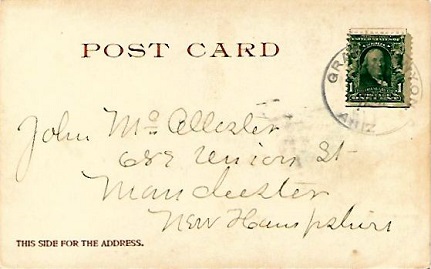 POST CARD
GRA YON
ARIZ
1
John McAllester
Union St
Manchester
New Hampshire
THIS SIDE FOR THE ADDRESS.